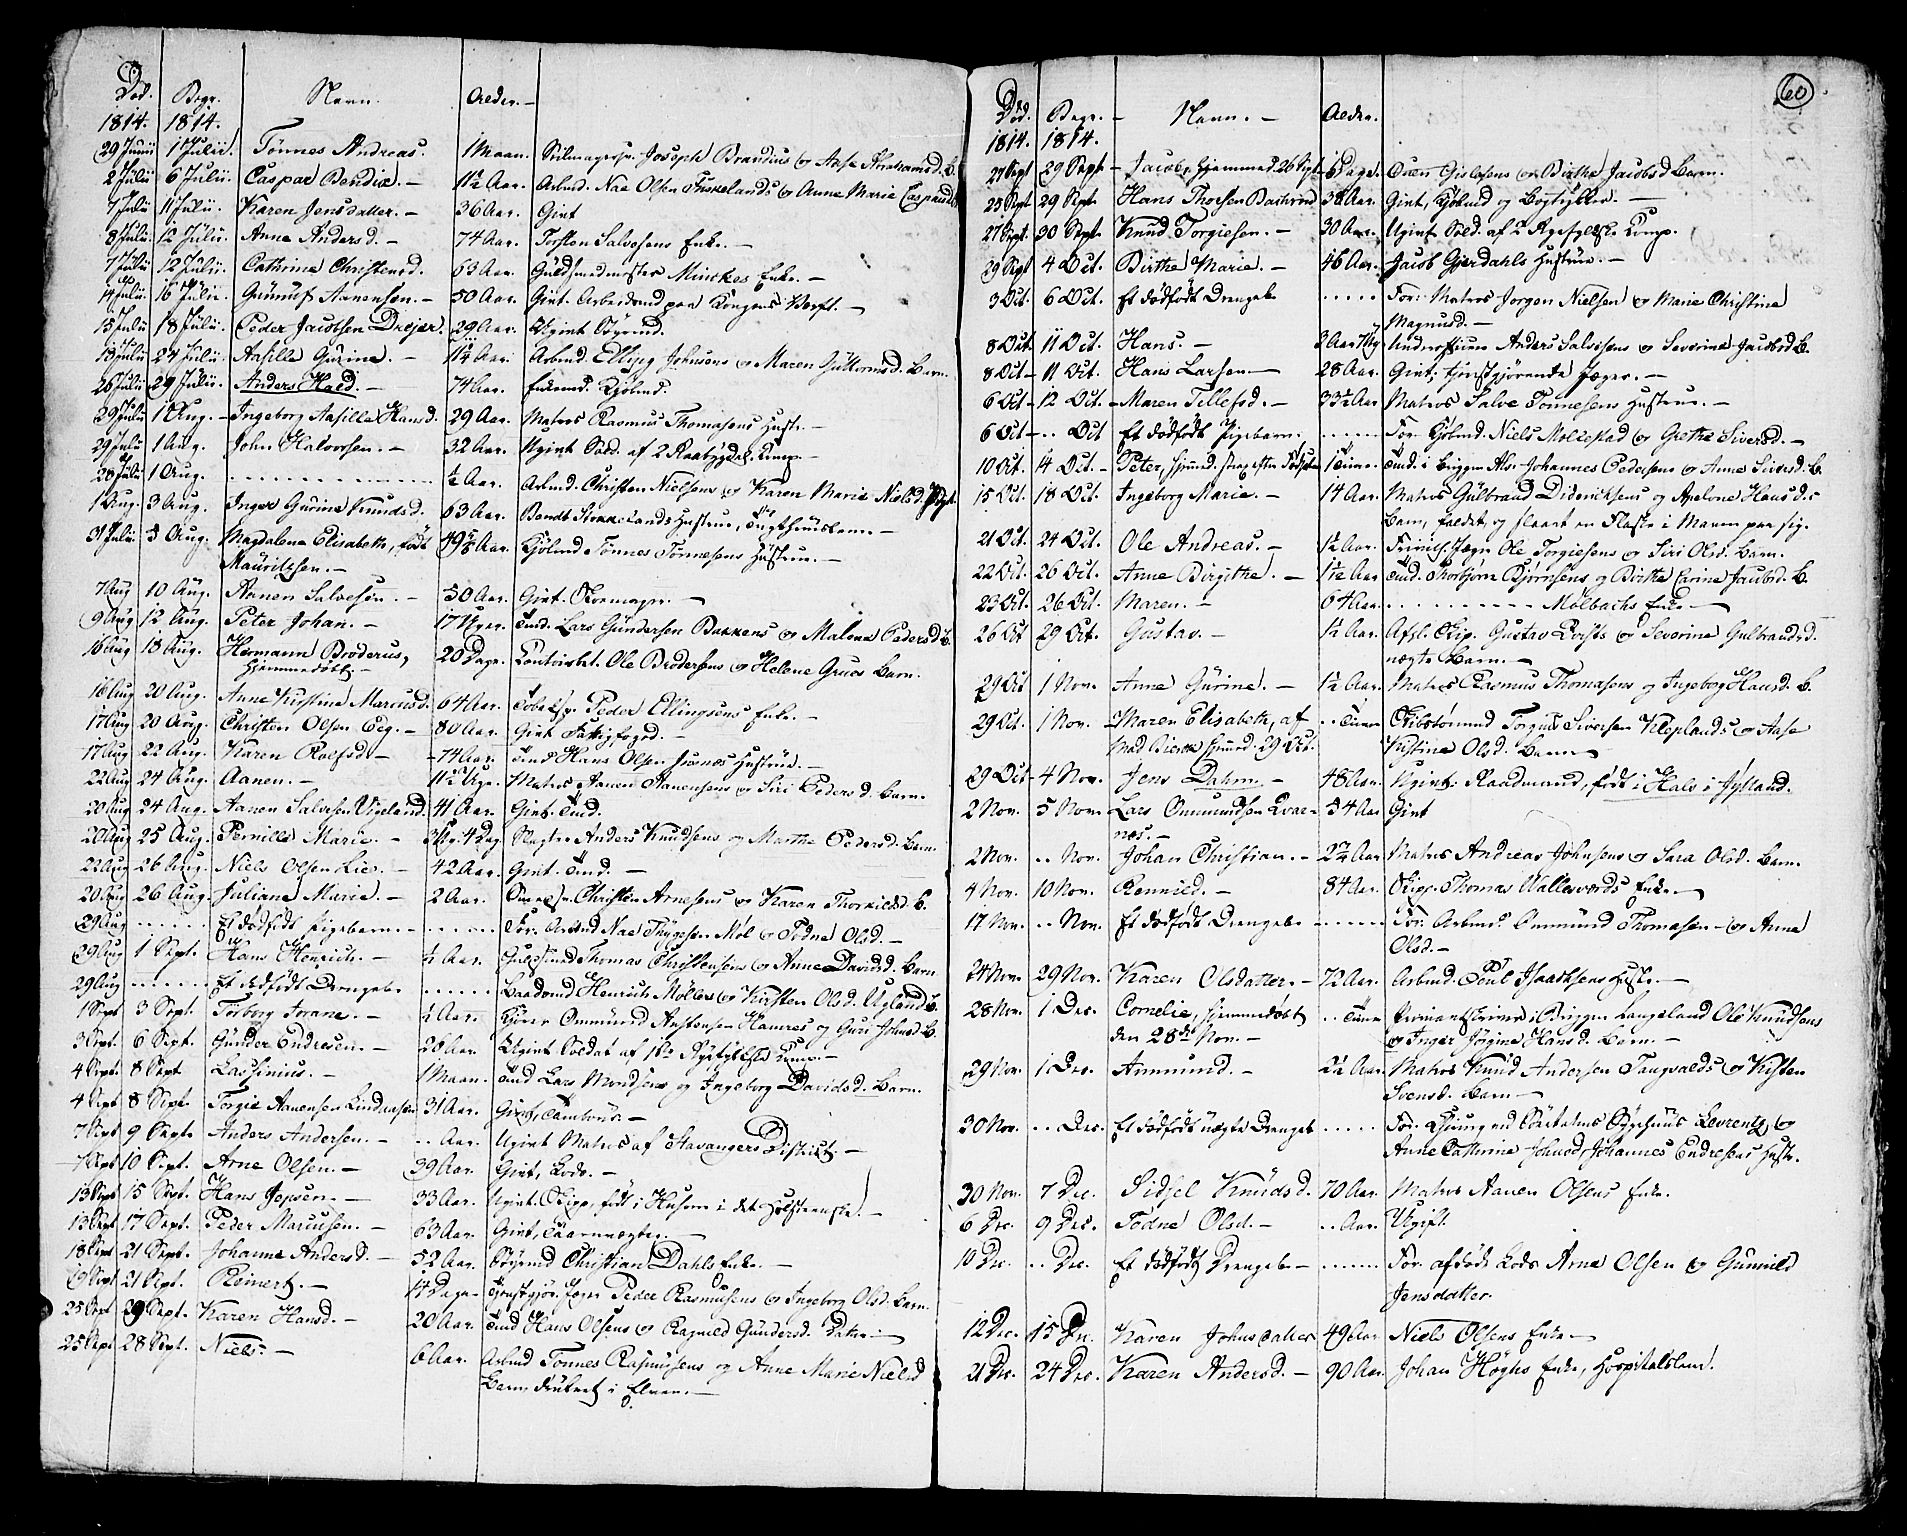 Død. Begr. Navn. Alder.
1814. 1814.
29 Junii 1 Julii. Tønnes Andreas. 1 Maan. Joseph Brandius og Aase Abrahamsd. B.
2 Julii 6 Julii. Caspar Bendix. 11½ Aar. Arbmd. Nae Olsen Fiskelands og Anne Marie Caspars
7 Julii 11 Julii. Karen Jensdatter. 36 Aar. Givt
8 Julii. 12 Julii. Anne Andersd. 74 Aar. Torsten Salvesens Enke.
7 Julii 12 Julii. Cathrina Christensd. 63 Aar. Guldsmedmester Minckes Enke.
14 Julii 16 Julii. Gunulf Aanensen. 50 Aar. Givt. Arbeidsmd paa Kongens Werft.
15 Julii 18 Julii. Peder Jacobsen Drejer. 29 Aar. Ugivt
19 Julii 24 Julii. Aasille Gurine. 11½ Aar. Arbmd. Ellug Johnsens og Maren Guttormsd. Barn.
26 Julii 29 Julii. Anders Hald. 74 Aar. Enkemd. Kjøbmd.
29 Julii 1 Aug. Ingeborg Aasille Hansd. 29 Aar. Matros Rasmus Thomasens Hustr.
29 Julii 1 Aug. John Halvorsen. 32 Aar. Ugivt Sold. af 2 Raabygdel. Comp.
28 Julii 1 Aug. ½ Aar. Arbmd. Christen Nielsens og Karen Marie Nielsd.
1 Aug. 3 Aug. Inger Gurine Knudsd. 63 Aar. Bendt Stokkelands Hustrue, Tugthuuslem.
31 Julii 3 Aug. Magdalena Elisabeth, født 49 Aar. Kjøbmd Tønnes Tønnesens Hustrue.
Mauritzsen.
7 Aug 10 Aug. Aanen Salvesen. 50 Aar. Givt. Skomager.
9 Aug 12 Aug. Peter Johan. 17 Uger. Tmd. Lars Gundersen Bakkens og Malene Pedersd. B.
16 Aug 18 Aug. Hermann Broderus, 20 Dage. Contoirbet. Ole Brodersens og Helene Grues Barn.
hjemmedøbt.
16 Aug 20 Aug. Anne Kirstine Marcusd. 64 Aar. Peder Ellingsens Enke.
17 Aug 20 Aug. Christen Olsen Eeg. 80 Aar. Givt Fattigfoged.
17 Aug 22 Aug. Karen Rolfsd. 74 Aar. Tmd Hans Olsen Hustrue.
22 Aug 24 Aug. Aanen. 11½ Uge. Matros Aanen Aanensens og Siri Pedersd. Barn.
20 Aug 24 Aug. Aanen Salvesen Vigeland 41 Aar. Givt. Tmd.
20 Aug 25 Aug. Pernille Marie. 4 Dag. Slagter Anders Knudsens og Marthe Pedersd. Barn.
22 Aug 26 Aug. Niels Olsen Lie. 42 Aar. Givt. Tmd.
20 Aug 26 Aug. Juliane Marie. 2 Aar. Christen Arnesens og Karen Thorkildsd. B.
29 Aug Et dødfødt Pigebarn. For. Arbmd Nae Thygesen Møl og Todne Olsd.
29 Aug 1 Sept. Hans Henrich. ½ Aar. Thomas Christensens og Anne Davidsd. Barn
29 Aug Et dødfødt Drengeb. Baadsmd Henrich Møllers og Kirsten Olsd. Ugland B.
1 Sept 3 Sept. Torborg Torane. ½ Aar. Ommund Austensen Hamres og Guri Johnsd. B.
3 Sept. 6 Sept. Gunder Endresen. 28 Aar. Ugivt Soldat af 1ste Agefyldske Comp.
4 Sept. 8 Sept Lassinius. 1 Maan. Tmd Lars Mondsens og Ingeborg Davidsd. Barn.
4 Sept 8 Sept. Torgie Aanensen Lindaasen 31 Aar. Givt, Tambour.
7 Sept 9 Sept. Anders Andersen. .. Aar. Ugivt Matros af Stavanger District.
7 Sept 10 Sept. Arne Olsen. 39 Aar. Givt, Lods.
13 Sept 15 Sept. Hans Jepsen. 33 Aar. Ugivt. Skipp, født i Husum i det Holsteenske.
13 Sept 17 Sept. Peder Marcusen. 63 Aar. Givt,
18 Sept 21 Sept. Johanne Andersd. 52 Aar. Christian Dahls Enke.
19 Sept 21 Sept. Reinert. 14 Dage Tjenstgjør. Jeger Peder Rasmusens og Ingeborg Olsd. Barn.
25 Sept 29 Sept. Karen Hansd. 20 Aar. Tmd Hans Olsens og Ragnild Gundersd. Datter.
25 Sept 28 Sept. Niels. 6 Aar. Arbmd Tønnes Rasmusens og Anne Marie Nielsd
Barn druknet i Elven.
60
Død. Begr. Navn. Alder.
1814. 1814.
27 Sept 29 Sept Jacob, hjemmed. 26 Sept 6 Dage. Ouen Gislesens og Birthe Jacobsd Barn.
25 Sept 29 Sept Hans Thorsen 38 Aar. Givt, Kjøbmd og Bogtrykker.
27 Sept. 30 Sept Knud Torgiesen. 30 Aar. Ugivt Sold. af 2 Agefyldske Comp.
29 Sept 4 Oct. Birthe Marie. 46 Aar. Jacob Gjerdahls Hustrue.
3 Oct. 6 Oct. Et dødfødt Drengeb. For: Matros Jørgen Nielsen og Marie Christine
Magnusd.
8 Oct. 11 Oct. Hans. 2 Aar Underofficeer Anders Salvesens og Severine Jacobsd B.
8 Oct 11 Oct. Hans Larsen 28 Aar. Givt; tjenstgjørende Jeger.
6 Oct 12 Oct. Maren Tellefsd. 33½ Aar. Matros Salve Tønnesens Hustrue.
6 Oct .. Oct Et dødfødt Pigebarn. For. Kjøbmd. Niels Mollestad og Grethe Siversd.
10 Oct. 14 Oct. Peter, hjemmd. strax efter Fødselen 1 Time. Tmd. i Briggen Alsr Johannes Pedersens og Anne Siversd. B.
15 Oct. 18 Oct. Ingeborg Marie. 14 Aar. Matros Gulbrand Diderichsens og Apelone Hansd.
Barn, faldt, og slaaet en Flaske i Maven paa sig.
21 Oct. 24 Oct. Ole Andreas. 1½ Aar. Jæger Ole Torgiesens og Siri Olsd. Barn.
22 Oct. 26 Oct. Anne Birgithe. 1½ Aar Tmd. Thorbjørn Bjørnsens og Birthe Carine Jacobsd. B.
23 Oct. 26 Oct. Maren. 64 Aar. Molbachs Enke
26 Oct 29 Oct. Gustav. 1½ Aar. Afsl. Skip. Gustav og Severine Gulbrandsd.
uægte Barn.
29 Oct 1 Nov. Anne Gurine. 1½ Aar. Matros Rasmus Thomasens og Ingeborg Hansd. B.
29 Oct. 1 Nov. Maren Elisabeth, af .. Time Skibstømmd Torgius Siversen Kleplands og Aase
Mad Bierck hjemmd. 29 Oct. Kistine Olsd. Barn
29 Oct 4 Nov. Jens Dahm. 48 Aar. Ugivt. Raadmand, født i Hals i Jylland.
2 Nov. 5 Nov. Lars Ommundsen Qvar- 54 Aar Givt
nes.
2 Nov. .. Nov. Johan Christian. 2¾ Aar Matros Andreas Johnsens og Sara Olsd. Barn.
4 Nov. 10 Nov. Rennild. 84 Aar. Skip. Thomas Wallesværds Enke
17 Nov. .. Nov. Et dødfødt Drengeb. For: Arbmd. Ommund Thomasen og Anne
Olsd.
24 Nov. 29 Nov. Karen Olsdatter. 72 Aar. Arbmd. Poul Isaachsens Hustr.
28 Nov. 1 Dec. Cornelie, hjemmedøbt .. Time i Briggen Langeland Ole Knudsens
den 28de Nov. og Inger Jørgine Hansd. Barn.
29 Nov. 1 Dec. Ammund. 2½ Aar. Matros Knud Andersen Tangvalds og Kisten
Svensd. Barn
30 Nov. .. Dec. Et dødfødt uægte Drengeb For: Lorentz og
Anne Cathrine Johnsd, Johannes Endresens Hustr.
30 Nov. 7 Dec. Sidsel Knudsd. 70 Aar. Matros Aanen Olsens Enke.
6 Dec. 9 Dec. Todne Olsd. .. Aar. Ugift.
10 Dec. .. Dec. Et dødfødt Drengeb For. Lods Arne Olsen og Gunvild
Jensdatter.
12 Dec. 15 Dec. Karen Johnsdatter 49 Aar Niels Olsens Enke
21 Dec. 24 Dec. Karen Andersd. 90 Aar. Johan Høghs Enke, Hospitalslem.